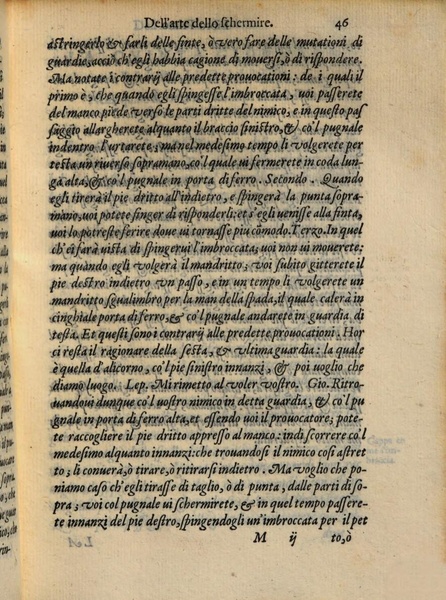 Dell'arte dello schermire. 46
astringerlo & farli delle finte, ò vero fare delle mutationi di
guardie, acciò ch'egli habbia cagione di mouersi, ò di rispondere.
Ma notate i contrarij alle predette prouocationi: de i quali il
primo è, che quando egli spingesse l'imbroccata, uoi passerete
del manco piede verso le parti dritte del nimico, e in questo pas
saggio allargherete alquanto il braccio sinistro, & co'l pugnale
indentro l'urtarete; ma nel medesimo tempo li volgerete per
testa un riuerso sopramano, co'l quale ui fermerete in coda lun
ga alta, & co'l pugnale in porta di ferro. Secondo. Quando
egli tirerà il pie dritto all'indietro, e spingerà la punta sopra
mano, uoi potete finger di risponderli: et s'egli uenisse alla finta,
uoi lo potreste ferire doue ui tornasse piu cōmodo. Terzo. In quel
ch'ei farà uista di spingerui l'imbroccata; uoi non ui mouerete:
ma quando egli volgerà il mandritto; voi subito gitterete il
pie destro indietro vn passo, e in un tempo li volgerete un
mandritto sgualimbro per la man della spada, il quale calerà in
cinghiale porta di ferro, & co'l pugnale andarete in guardia di
testa. Et questi sono i contrarij alle predette prouocationi. Hor
ci resta il ragionare della sesta, & vltima guardia: la quale
è quella d'alicorno, co'l pie sinistro innanzi, & poi voglio che
diamo luogo. Lep. Mi rimetto al voler vostro. Gio. Ritro-
uandoui dunque co'l uostro nimico in detta guardia, & co'l pu
gnale in porta di ferro alta, et essendo uoi il prouocatore; pote-
te raccogliere il pie dritto appresso al manco: indi scorrere co'l
medesimo alquanto innanzi: che trouandosi il nimico cosi astret
to; li conuerà, ò tirare, ò ritirarsi indietro. Ma voglio che po-
niamo caso ch'egli tirasse di taglio, ò di punta, dalle parti di so-
pra; voi col pugnale ui schermirete, & in quel tempo passere-
te innanzi del pie destro, spingendogli un'imbroccata per il pet
M ij to, ò